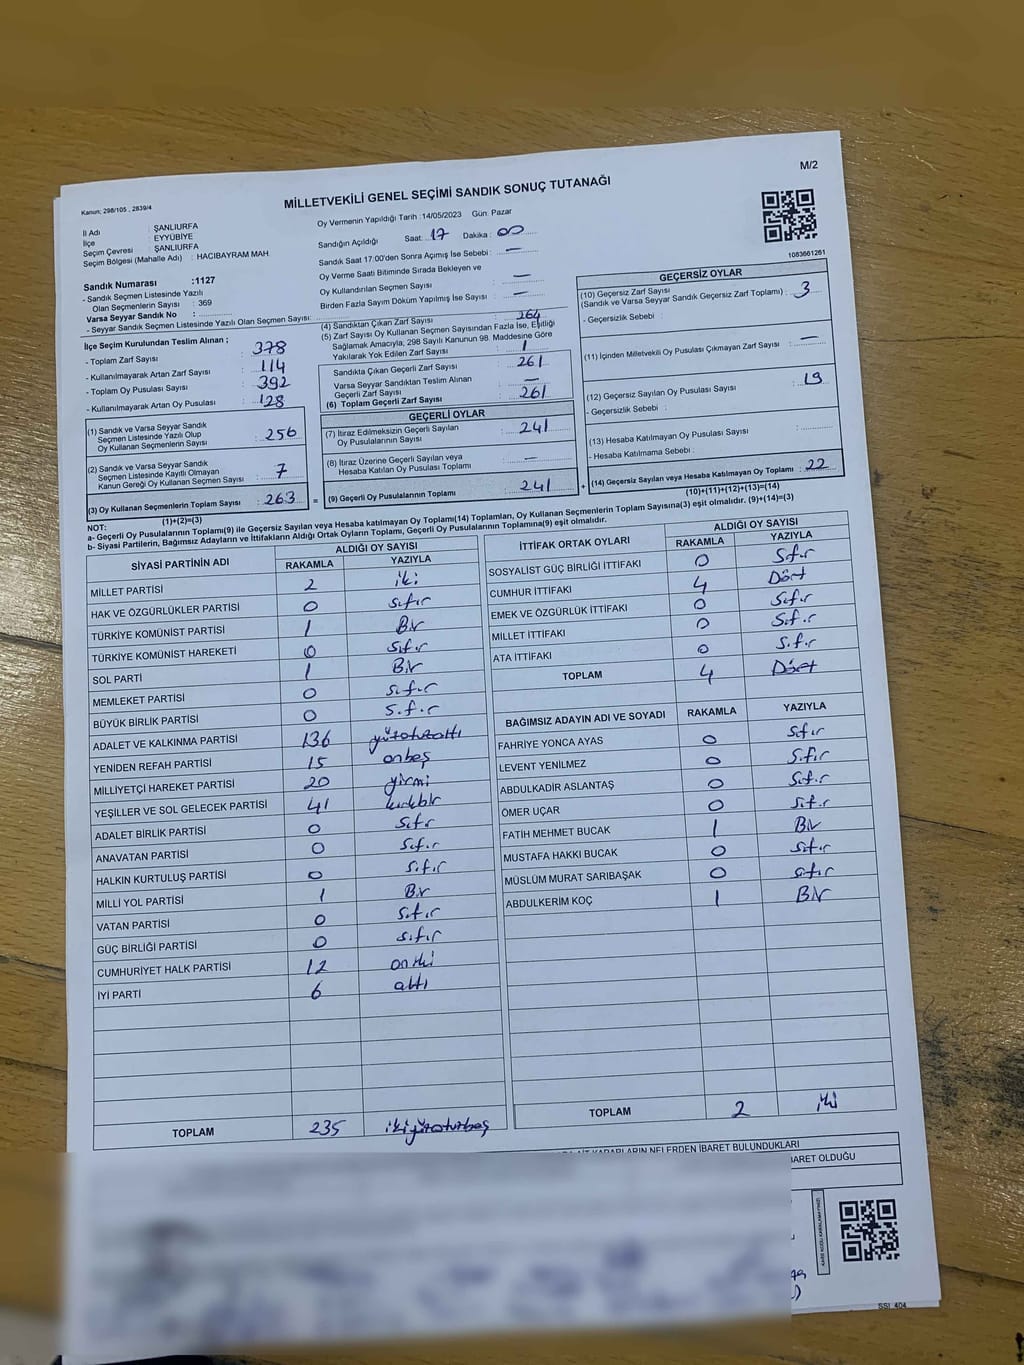 M/2
Kanun: 298/105 , 2839/4
MİLLETVEKİLİ GENEL SEÇİMİ SANDIK SONUÇ TUTANAĞI
İl Adı : ŞANLIURFA
İlçe : EYYÜBİYE
Seçim Çevresi : ŞANLIURFA
Seçim Bölgesi (Mahalle Adı) : HACIBAYRAM MAH
Sandık Numarası :1127
- Sandık Seçmen Listesinde Yazılı
Olan Seçmenlerin Sayısı : 369
Varsa Seyyar Sandık No :
- Seyyar Sandık Seçmen Listesinde Yazılı Olan Seçmen Sayısı:
Oy Vermenin Yapıldığı Tarih :14/05/2023 Gün: Pazar
Sandığın Açıldığı Saat: 17 Dakika : 00
Sandık Saat 17:00'den Sonra Açımış İse Sebebi : —
Oy Verme Saati Bitiminde Sırada Bekleyen ve
Oy Kullandırılan Seçmen Sayısı : —
Birden Fazla Sayım Döküm Yapılmış İse Sayısı : —
1083661261
İlçe Seçim Kurulundan Teslim Alınan ;
- Toplam Zarf Sayısı : 378
- Kullanılmayarak Artan Zarf Sayısı : 114
- Toplam Oy Pusulası Sayısı : 392
- Kullanılmayarak Artan Oy Pusulası : 128
(1) Sandık ve Varsa Seyyar Sandık
Seçmen Listesinde Yazılı Olup
Oy Kullanan Seçmenlerin Sayısı : 256
(2) Sandık ve Varsa Seyyar Sandık
Seçmen Listesinde Kayıtlı Olmayan
Kanun Gereği Oy Kullanan Seçmen Sayısı : 7
(3) Oy Kullanan Seçmenlerin Toplam Sayısı : 263 =
(1)+(2)=(3)
(4) Sandıktan Çıkan Zarf Sayısı : 264
(5) Zarf Sayısı Oy Kullanan Seçmen Sayısından Fazla İse, Eşitliği
Sağlamak Amacıyla, 298 Sayılı Kanunun 98. Maddesine Göre
Yakılarak Yok Edilen Zarf Sayısı : 1
Sandıkta Çıkan Geçerli Zarf Sayısı : 261
Varsa Seyyar Sandıktan Teslim Alınan
Geçerli Zarf Sayısı : —
(6) Toplam Geçerli Zarf Sayısı : 261
GEÇERLİ OYLAR
(7) İtiraz Edilmeksizin Geçerli Sayılan
Oy Pusulalarının Sayısı : 241
(8) İtiraz Üzerine Geçerli Sayılan veya
Hesaba Katılan Oy Pusulası Toplamı : —
(9) Geçerli Oy Pusulalarının Toplamı : 241 +
GEÇERSİZ OYLAR
(10) Geçersiz Zarf Sayısı
(Sandık ve Varsa Seyyar Sandık Geçersiz Zarf Toplamı) : 3
- Geçersizlik Sebebi :
(11) İçinden Milletvekili Oy Pusulası Çıkmayan Zarf Sayısı : —
(12) Geçersiz Sayılan Oy Pusulası Sayısı : 19
- Geçersizlik Sebebi :
(13) Hesaba Katılmayan Oy Pusulası Sayısı :
- Hesaba Katılmama Sebebi :
(14) Geçersiz Sayılan veya Hesaba Katılmayan Oy Toplamı : 22
(10)+(11)+(12)+(13)=(14)
NOT:
a- Geçerli Oy Pusulalarının Toplamı(9) ile Geçersiz Sayılan veya Hesaba katılmayan Oy Toplamı(14) Toplamları, Oy Kullanan Seçmenlerin Toplam Sayısına(3) eşit olmalıdır. (9)+(14)=(3)
b- Siyasi Partilerin, Bağımsız Adayların ve İttifakların Aldığı Ortak Oyların Toplamı, Geçerli Oy Pusulalarının Toplamına(9) eşit olmalıdır.
SİYASİ PARTİNİN ADI ALDIĞI OY SAYISI
RAKAMLA YAZIYLA
MİLLET PARTİSİ 2 iki
HAK VE ÖZGÜRLÜKLER PARTİSİ 0 sıfır
TÜRKİYE KOMÜNİST PARTİSİ 1 Bir
TÜRKİYE KOMÜNİST HAREKETİ 0 Sıfır
SOL PARTİ 1 Bir
MEMLEKET PARTİSİ 0 sıfır
BÜYÜK BİRLİK PARTİSİ 0 sıfır
ADALET VE KALKINMA PARTİSİ 136 yüzotuzaltı
YENİDEN REFAH PARTİSİ 15 onbeş
MİLLİYETÇİ HAREKET PARTİSİ 20 yirmi
YEŞİLLER VE SOL GELECEK PARTİSİ 41 kırkbir
ADALET BİRLİK PARTİSİ 0 Sıfır
ANAVATAN PARTİSİ 0 Sıfır
HALKIN KURTULUŞ PARTİSİ 0 Sıfır
MİLLİ YOL PARTİSİ 1 Bir
VATAN PARTİSİ 0 Sıfır
GÜÇ BİRLİĞİ PARTİSİ 0 sıfır
CUMHURİYET HALK PARTİSİ 12 oniki
İYİ PARTİ 6 altı
TOPLAM 235 ikiyüzotuzbeş
İTTİFAK ORTAK OYLARI ALDIĞI OY SAYISI
RAKAMLA YAZIYLA
SOSYALİST GÜÇ BİRLİĞİ İTTİFAKI 0 Sıfır
CUMHUR İTTİFAKI 4 Dört
EMEK VE ÖZGÜRLÜK İTTİFAKI 0 Sıfır
MİLLET İTTİFAKI 0 Sıfır
ATA İTTİFAKI 0 Sıfır
TOPLAM 4 Dört
BAĞIMSIZ ADAYIN ADI VE SOYADI RAKAMLA YAZIYLA
FAHRİYE YONCA AYAS 0 Sıfır
LEVENT YENİLMEZ 0 Sıfır
ABDULKADİR ASLANTAŞ 0 Sıfır
ÖMER UÇAR 0 Sıfır
FATİH MEHMET BUCAK 1 Bir
MUSTAFA HAKKI BUCAK 0 Sıfır
MÜSLÜM MURAT SARIBAŞAK 0 sıfır
ABDULKERİM KOÇ 1 Bir
TOPLAM 2 iki
KARARLARIN NELERDEN İBARET BULUNDUKLARI
BARET OLDUĞU
SSI 404